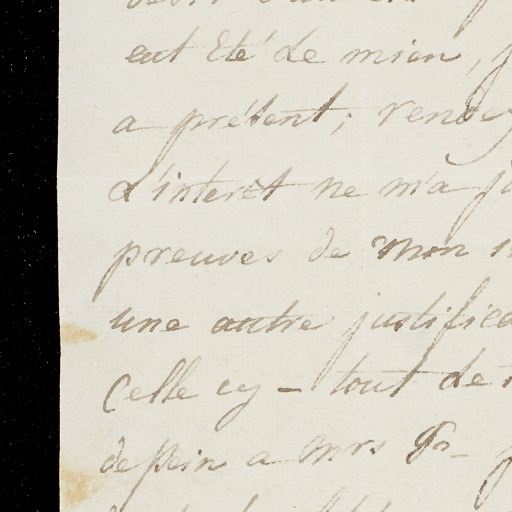 eut Eté Le mien, j
a présent; rendez
L'interêt ne m'a ja
preuves de mon
une autre justifica
Celle cy - tout Le
dessein a Mrs Fr-